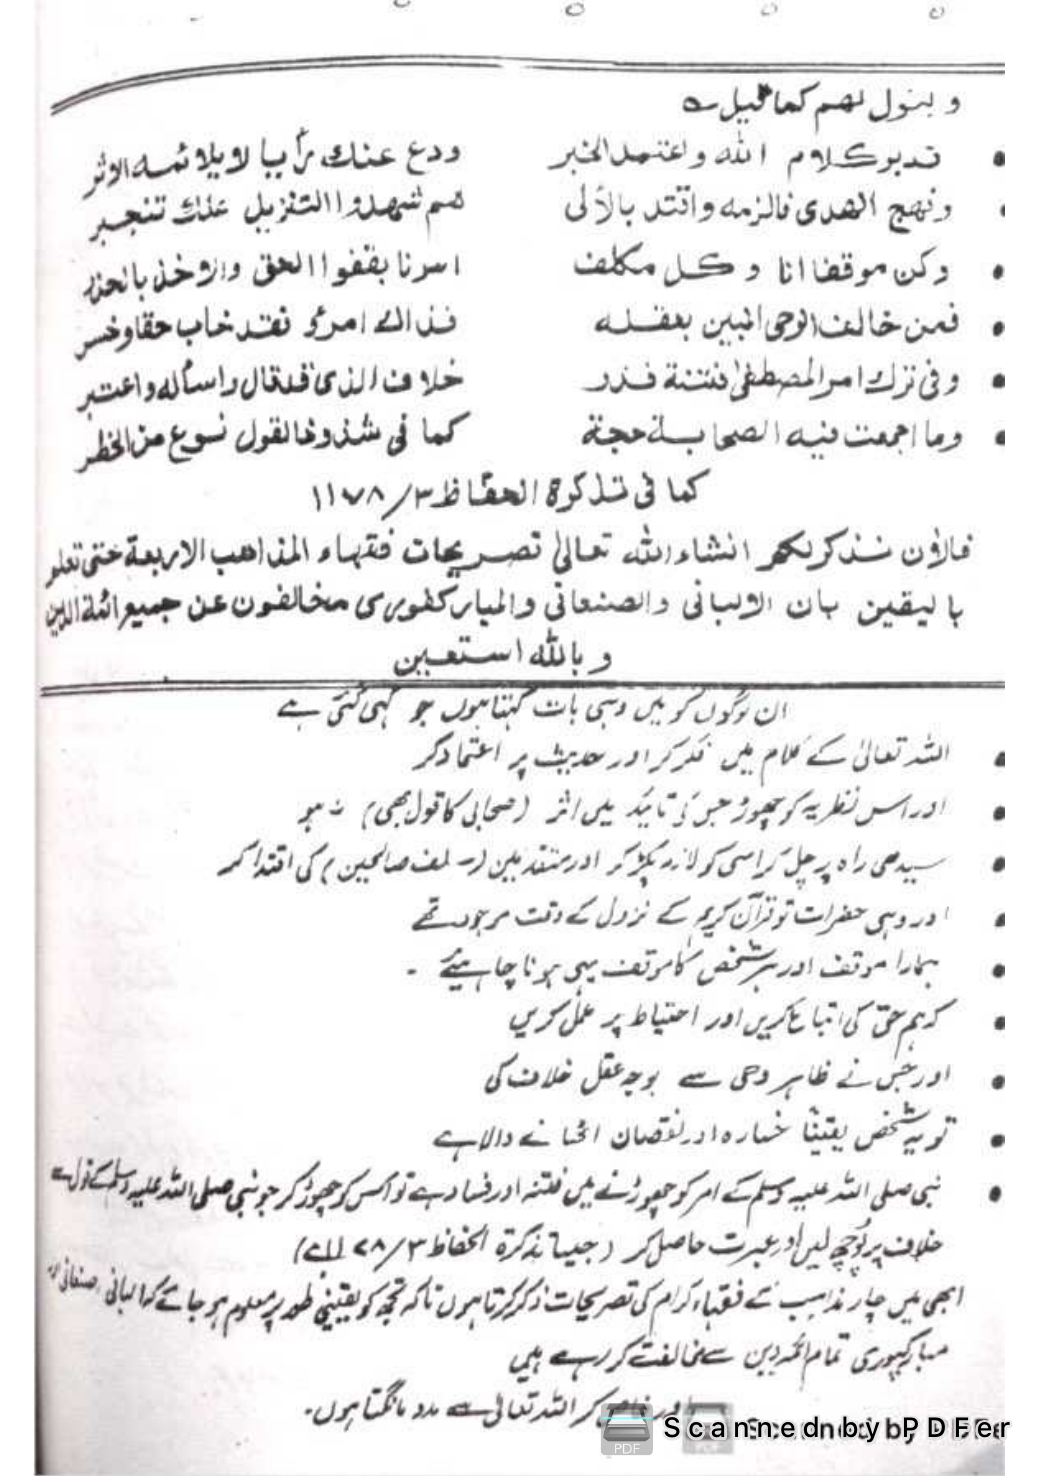 و نقول لهم كما قيل ے
تدبر كلام الله واعتمد الخبر ودع عنك رأيا لا يلائمه الاثر
ونهج الهدى فالزمه واقتد بالألى هم شهدوا التنزيل علك تنجبر
وكن موقفا انا وكل مكلف امرنا بقفوا الحق والاخذ بالحذر
فمن خالف الوحى المبين بعقله فذاك امرؤ فقد خاب حقا وخسر
وفى ترك امر المصطفىٰ فتنة فذر خلاف الذى قد قال راسأله واعتبر
وما اجمعت فيه الصحابة حجة كما فى شذوذ القول نوع من الخطر
كما فى تذكرة الحفاظ ٣/١١٧٨
فالاٰن نذكر لكم انشاء الله تعالىٰ تصريحات فقهاء المذاهب الاربعة حتى تعلم
باليقين بان الالبانى والصنعانى والمباركفورى مخالفون عن جميع ائمة الدين
و بالله استعين
ان لوگوں کو میں وہی بات کہتا ہوں جو کہی گئی ہے
اللہ تعالیٰ کے کلام میں فکر کر اور حدیث پر اعتماد کر
اور اس نظریہ کو چھوڑ جس کی تائید میں اثر (صحابی کا قول بھی) نہ ہو
سیدھی راہ پر چل کر اسی کو لازم پکڑ کر اور متقدمین (سلف صالحین) کی اقتدا کر
اور وہی حضرات تو قرآن کریم کے نزول کے وقت موجود تھے
ہمارا موقف اور ہر شخص کا موقف یہی ہونا چاہیئے ۔
کہ ہم حق کی اتباع کریں اور احتیاط پر عمل کریں
اور جس نے ظاہر وحی سے بوجہ عقل خلاف کی
تو یہ شخص یقینًا خسارہ اور نقصان اٹھانے والا ہے
نبی صلی اللہ علیہ وسلم کے امر کو چھوڑنے میں فتنہ اور فساد ہے تو اس کو چھوڑ کر جو نبی صلی اللہ علیہ وسلم کے قول سے
خلاف پر پوچھ لیں اور عبرت حاصل کر (جیسا تذکرة الحفاظ ٣/
ابھی میں چار مذاہب کے فقہاء کرام کی تصریحات ذکر کرتا ہوں تاکہ تجھ کو یقینی طور پر معلوم ہو جائے کہ البانی، صنعانی اور
مبارکپوری تمام ائمہ دین سے مخالفت کر رہے ہیں
اور خاص کر اللہ تعالیٰ سے مدد مانگتا ہوں۔
PDF Scanned by PDFer